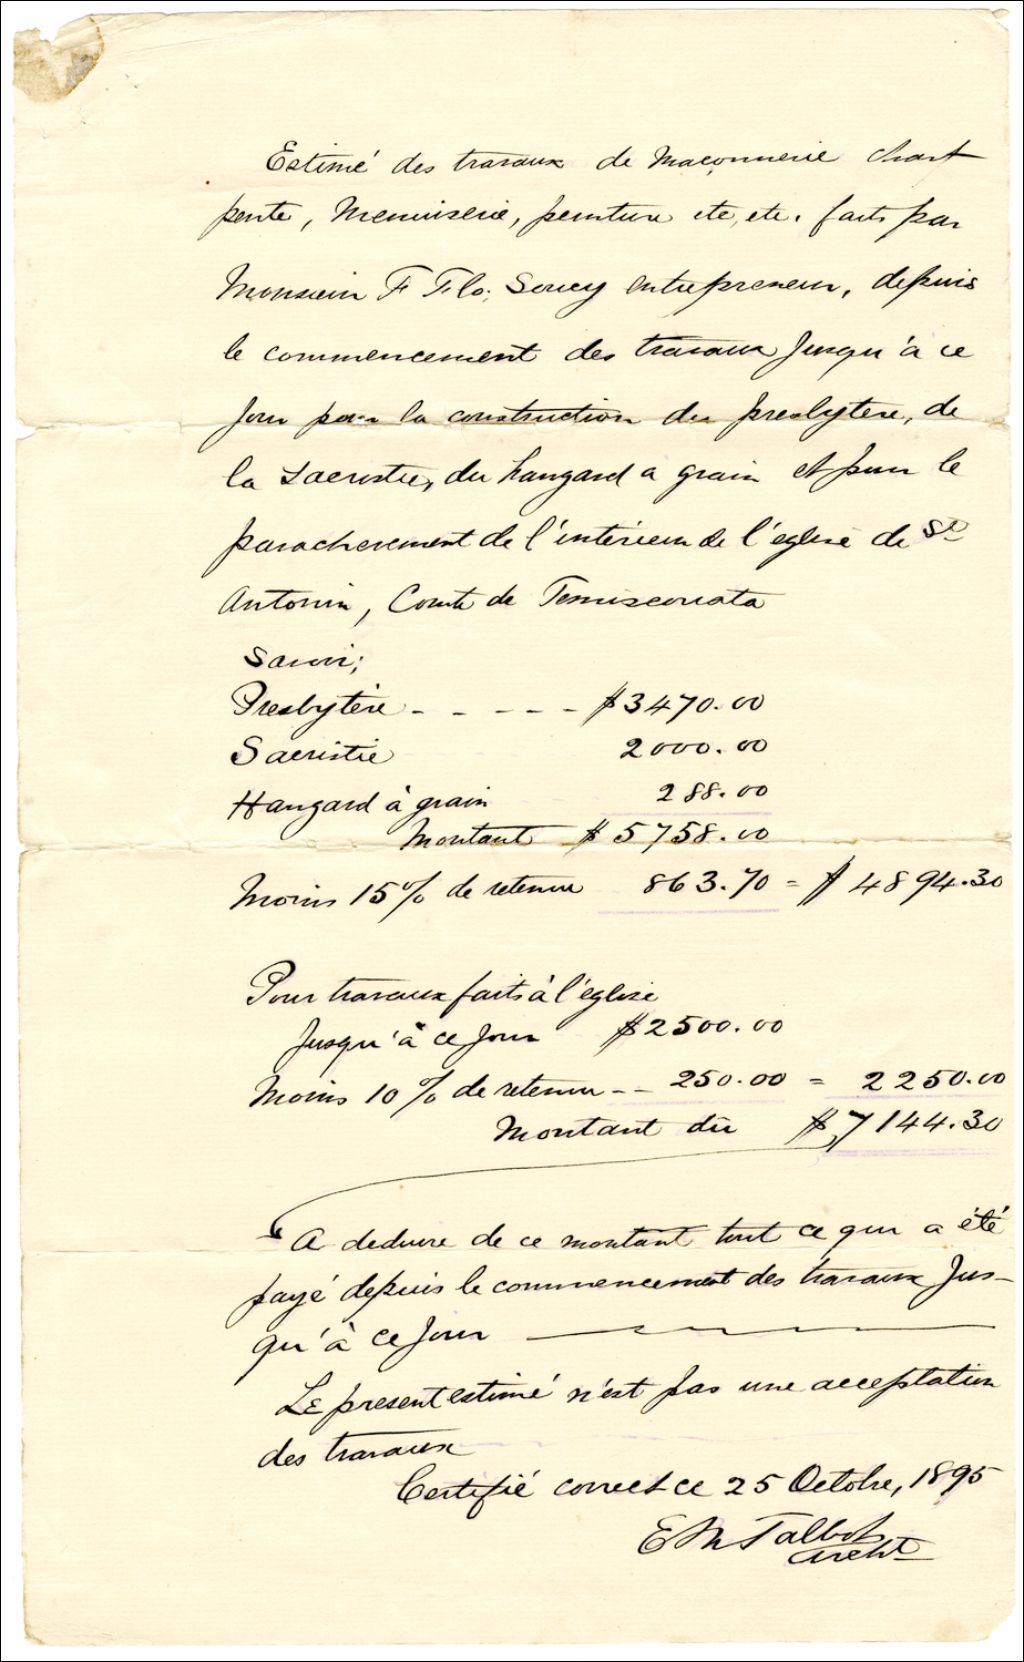 Estimé des travaux de Maçonnerie Char-
pente, Menuiserie, peinture etc, etc. faits par
Monsieur F Flo. Soucy entrepreneur, depuis
le commencement des travaux Jusqu'à ce
Jour pour la construction du presbytère, de
la Sacristie, du hangard a grain et pour le
parachevement de l'intérieur de l'église de St
Antonin, Comté de Temiscouata
Savoir;
Presbytère - - - - - $3470.00
Sacristie 2000.00
Hangard à grain 288.00
Montant $5758.00
Moins 15% de retenue 863.70 = $4894.30
Pour travaux faits à l'église
Jusqu'à ce Jour $2500.00
Moins 10% de retenue -- 250.00 = 2250.00
Montant dû $7144.30
A deduire de ce montant tout ce qui a été
payé depuis le commencement des travaux Jus-
qu'à ce Jour
Le present estimé n'est pas une acceptation
des travaux
Certifié correct ce 25 Octobre, 1895
E M Talbot
Archt